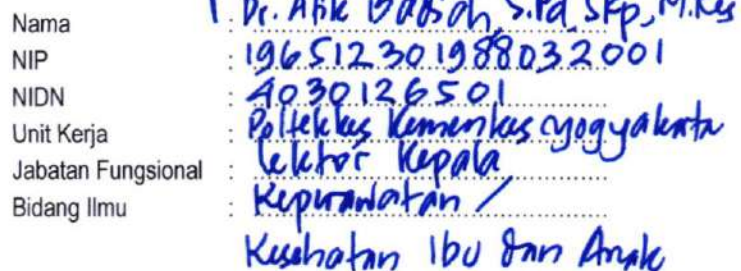 Nama : Dr. Atik Badi'ah, S.Pd, SKp, M.Kes
NIP : 196512301988032001
NIDN : 4030126501
Unit Kerja : Poltekkes Kemenkes Yogyakarta
Jabatan Fungsional : Lektor Kepala
Bidang Ilmu : Keperawatan /
Kesehatan Ibu dan Anak